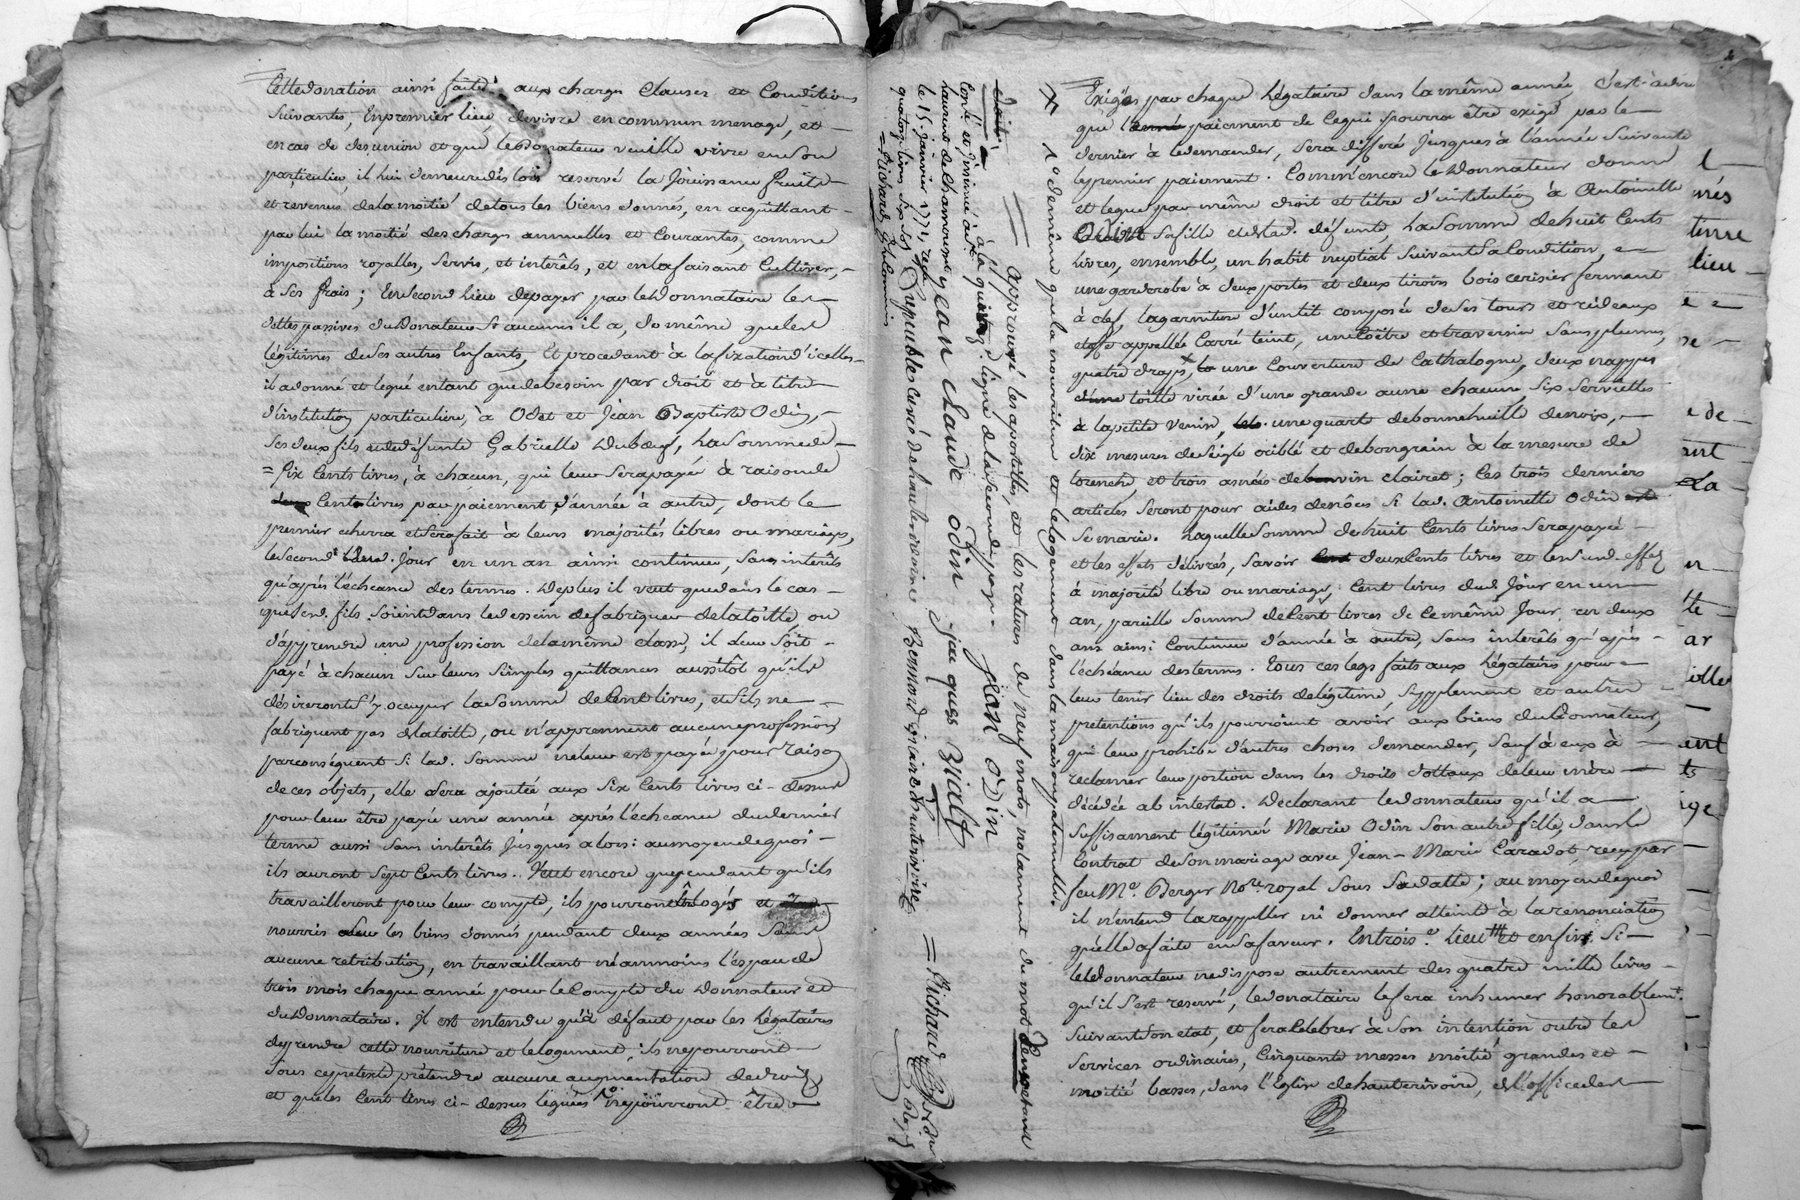 Cette donation ainsi faite aux charges Clauses et Conditions
suivantes, En premier lieu de vivre en commun menage, et
en cas de desunion et que le donateur veuille vivre en son
particulier, il lui demeure dès lors reservé la Jouissance fruits
et revenus de la moitié de tous les biens donnés, en acquittant
par lui la moitié des charges annuelles et Courantes, comme
impositions royalles, servis, et intérêts, et en la faisant Cultiver,
à ses frais ; En second lieu de payer par le Donnataire les
dettes passives du Donateur si aucunes il a, de même que les
légitimes de ses autres Enfants, Et procedant à la fixation d'icelles
il a donné et legué en tant que de besoin par droit et à titre
d'institution particuliere, à Odet et Jean Baptiste Odin,
ses deux fils et de défunte Gabrielle Duboeuf, la somme de
= six Cents livres, à chacun, qui leur sera payé à raison de
Cents livres par paiement d'année à autre, dont le
premier echerra et sera fait à leurs majorités libres ou mariages,
le second à Jour en un an ainsi continuer, sans intérêts
qu'après l'écheance des termes. De plus il veut que dans le cas
que sesd. fils soient dans le dessein de fabriquer de la toille, ou
d'apprendre une profession de la même classe, il leur soit
payé à chacun sur leurs simples quittances aussitôt qu'ils
désireront s'y occuper la somme de Cent livres, et s'ils ne
fabriquent pas de la toille, ou n'apprennent aucune profession
par conséquent si lad. somme ne leur est payée pour raison
de ces objets, elle sera ajoutée aux six Cents livres ci-dessus
pour leur être payée une année après l'écheance du dernier
terme aussi sans intérêts jusques alors : au moyen de quoi
ils auront sept Cents livres. Veut encore que pendant qu'ils
travailleront pour leur compte, ils pourront être logés et
nourris les biens donnés pendant deux années sans
aucune retribution, en travaillant néanmoins l'espace de
trois mois chaque année pour le Compte du Donnateur et
du Donnataire. Il est entendu qu'à défaut par les légataires
de prendre cette nourriture et le logement, ils ne pourront
sous ce pretexte prétendre aucune augmentation de droits
et que les Cent livres ci-dessus leguées ne pourront être
Controllé et insinué à st.
Laurent de Chamousset
le 15 janvier reçu
quatorze livres dix sols
= Richard
à la que ligne de la seconde page.
Jean Claude Odin Jacques Vialt
Dupuible curé de haute rivoire Bernard
= approuvé les apostilles, et les ratures de neuf mots, notamment du mot
Jean Odin
= Richard
X de même que la nourriture et le logement dans la maison paternelle.
Exigés par chaque légataire dans la même année, c'est-à-dire
que l'année paiement de ce qui pourra être exigé par le
dernier à le demander, sera differé jusques à l'année suivante
le premier paiement. Comm'encore le Donnateur donne
et legue par même droit et titre d'institution à Antoinette
Odin sa fille et de lad. défunte, la somme de huit Cents
livres, ensemble, un habit nuptial suivant sa Condition,
une garderobe à deux portes et deux tiroirs bois cerisier fermant
à clef, la garniture d'un lit composée de ses tours et rideaux
etoffe appellée Carré teint, un loëtre et traversin sans plumes,
quatre draps, une Couverture de Cathalogne, deux nappes
toille virée d'une grande aune chacune, six serviettes
à la petite Venise, une quarte de bonne huille de noix,
dix mesures de seigle criblé et de bon grain à la mesure de
torenche, et trois asnées de vin clairet ; Ces trois derniers
articles seront pour aides de nôces si lad. Antoinette Odin
se marie. Laquelle somme de huit Cents livres sera payée
et les effets délivrés, savoir deux Cents livres et lesd. effets
à majorité libre ou mariage, Cent livres dud. Jour en un
an, pareille somme de Cent livres de ce même Jour en deux
ans ainsi Continuer d'année à autre, sans intérêts qu'après
l'écheance des termes. Tous ces legs faits aux légataires pour
leur tenir lieu des droits de légitime, supplement et autres
pretentions qu'ils pourroient avoir aux biens du Donnateur,
qui leur prohibe d'autres choses demander, sauf à eux à
reclamer leur portion dans les droits dottaux de leur mère
décédée ab intestat. Declarant le donnateur qu'il a
suffisament légitimé Marie Odin son autre fille, dans le
Contrat de son mariage avec Jean-Marie Caradot, reçu par
feu Me. Berger Nore. royal sous sa datte ; au moyen de quoi
il n'entend la rappeller ni donner atteinte à la renonciation
qu'elle a faite en sa faveur. En trois.e lieu et enfin si
le donnateur ne dispose autrement des quatre mille livres
qu'il s'est reservé, le donataire le fera inhumer honorablemt.
suivant son etat, et fera Celebrer à son intention outre les
services ordinaires, Cinquante messes moitié grandes et
moitié basses, dans l'Eglise de hauterivoire, et l'office des